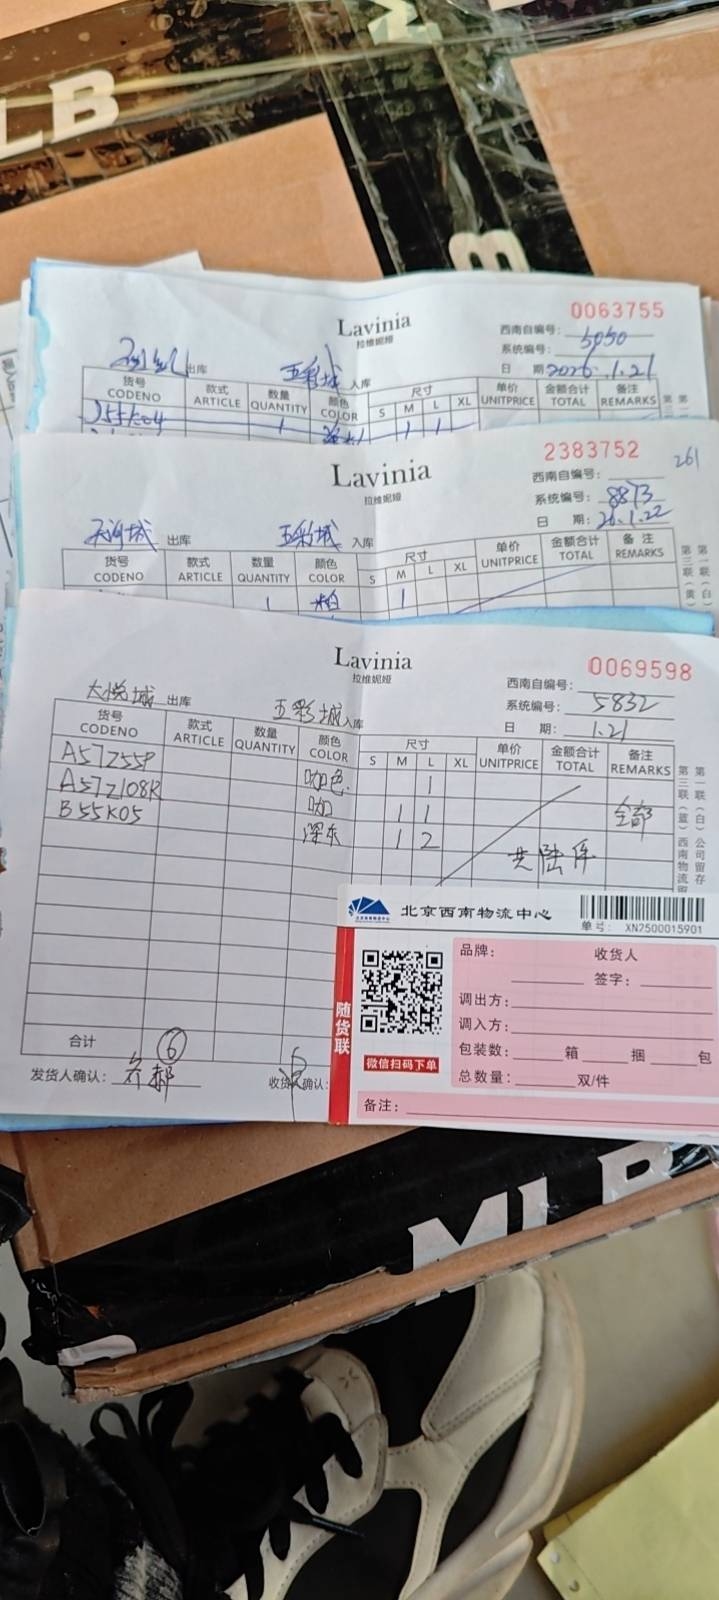 LB
0063755
Lavinia
拉维妮娅
西南自编号:
系统编号: 5050
出库
五彩城 入库
日 期 2026.1.21
货号 CODENO 款式 ARTICLE 数量 QUANTITY 颜色 COLOR 尺寸 S M L XL 单价 UNITPRICE 金额合计 TOTAL 备注 REMARKS
J55K04 1 1 1
2383752
261
Lavinia
拉维妮娅
西南自编号:
系统编号: 8873
天河城 出库 五彩城 入库 日 期: 26.1.22
货号 CODENO 款式 ARTICLE 数量 QUANTITY 颜色 COLOR 尺寸 S M L XL 单价 UNITPRICE 金额合计 TOTAL 备注 REMARKS
1 1
Lavinia
拉维妮娅
0069598
西南自编号:
系统编号: 5832
大悦城 出库 五彩城 入库 日 期: 1.21
货号 CODENO 款式 ARTICLE 数量 QUANTITY 颜色 COLOR 尺寸 S M L XL 单价 UNITPRICE 金额合计 TOTAL 备注 REMARKS
A57Z55P 咖色 1
A57Z108R 咖 1 1 全部
B55K05 深灰 1 2
共陆件
合计 ⑥
发货人确认:
收货人确认:
北京西南物流中心
单号: XN2500015901
随货联
微信扫码下单
品牌: 收货人
签字:
调出方:
调入方:
包装数: 箱 捆 包
总数量: 双/件
备注:
MLB